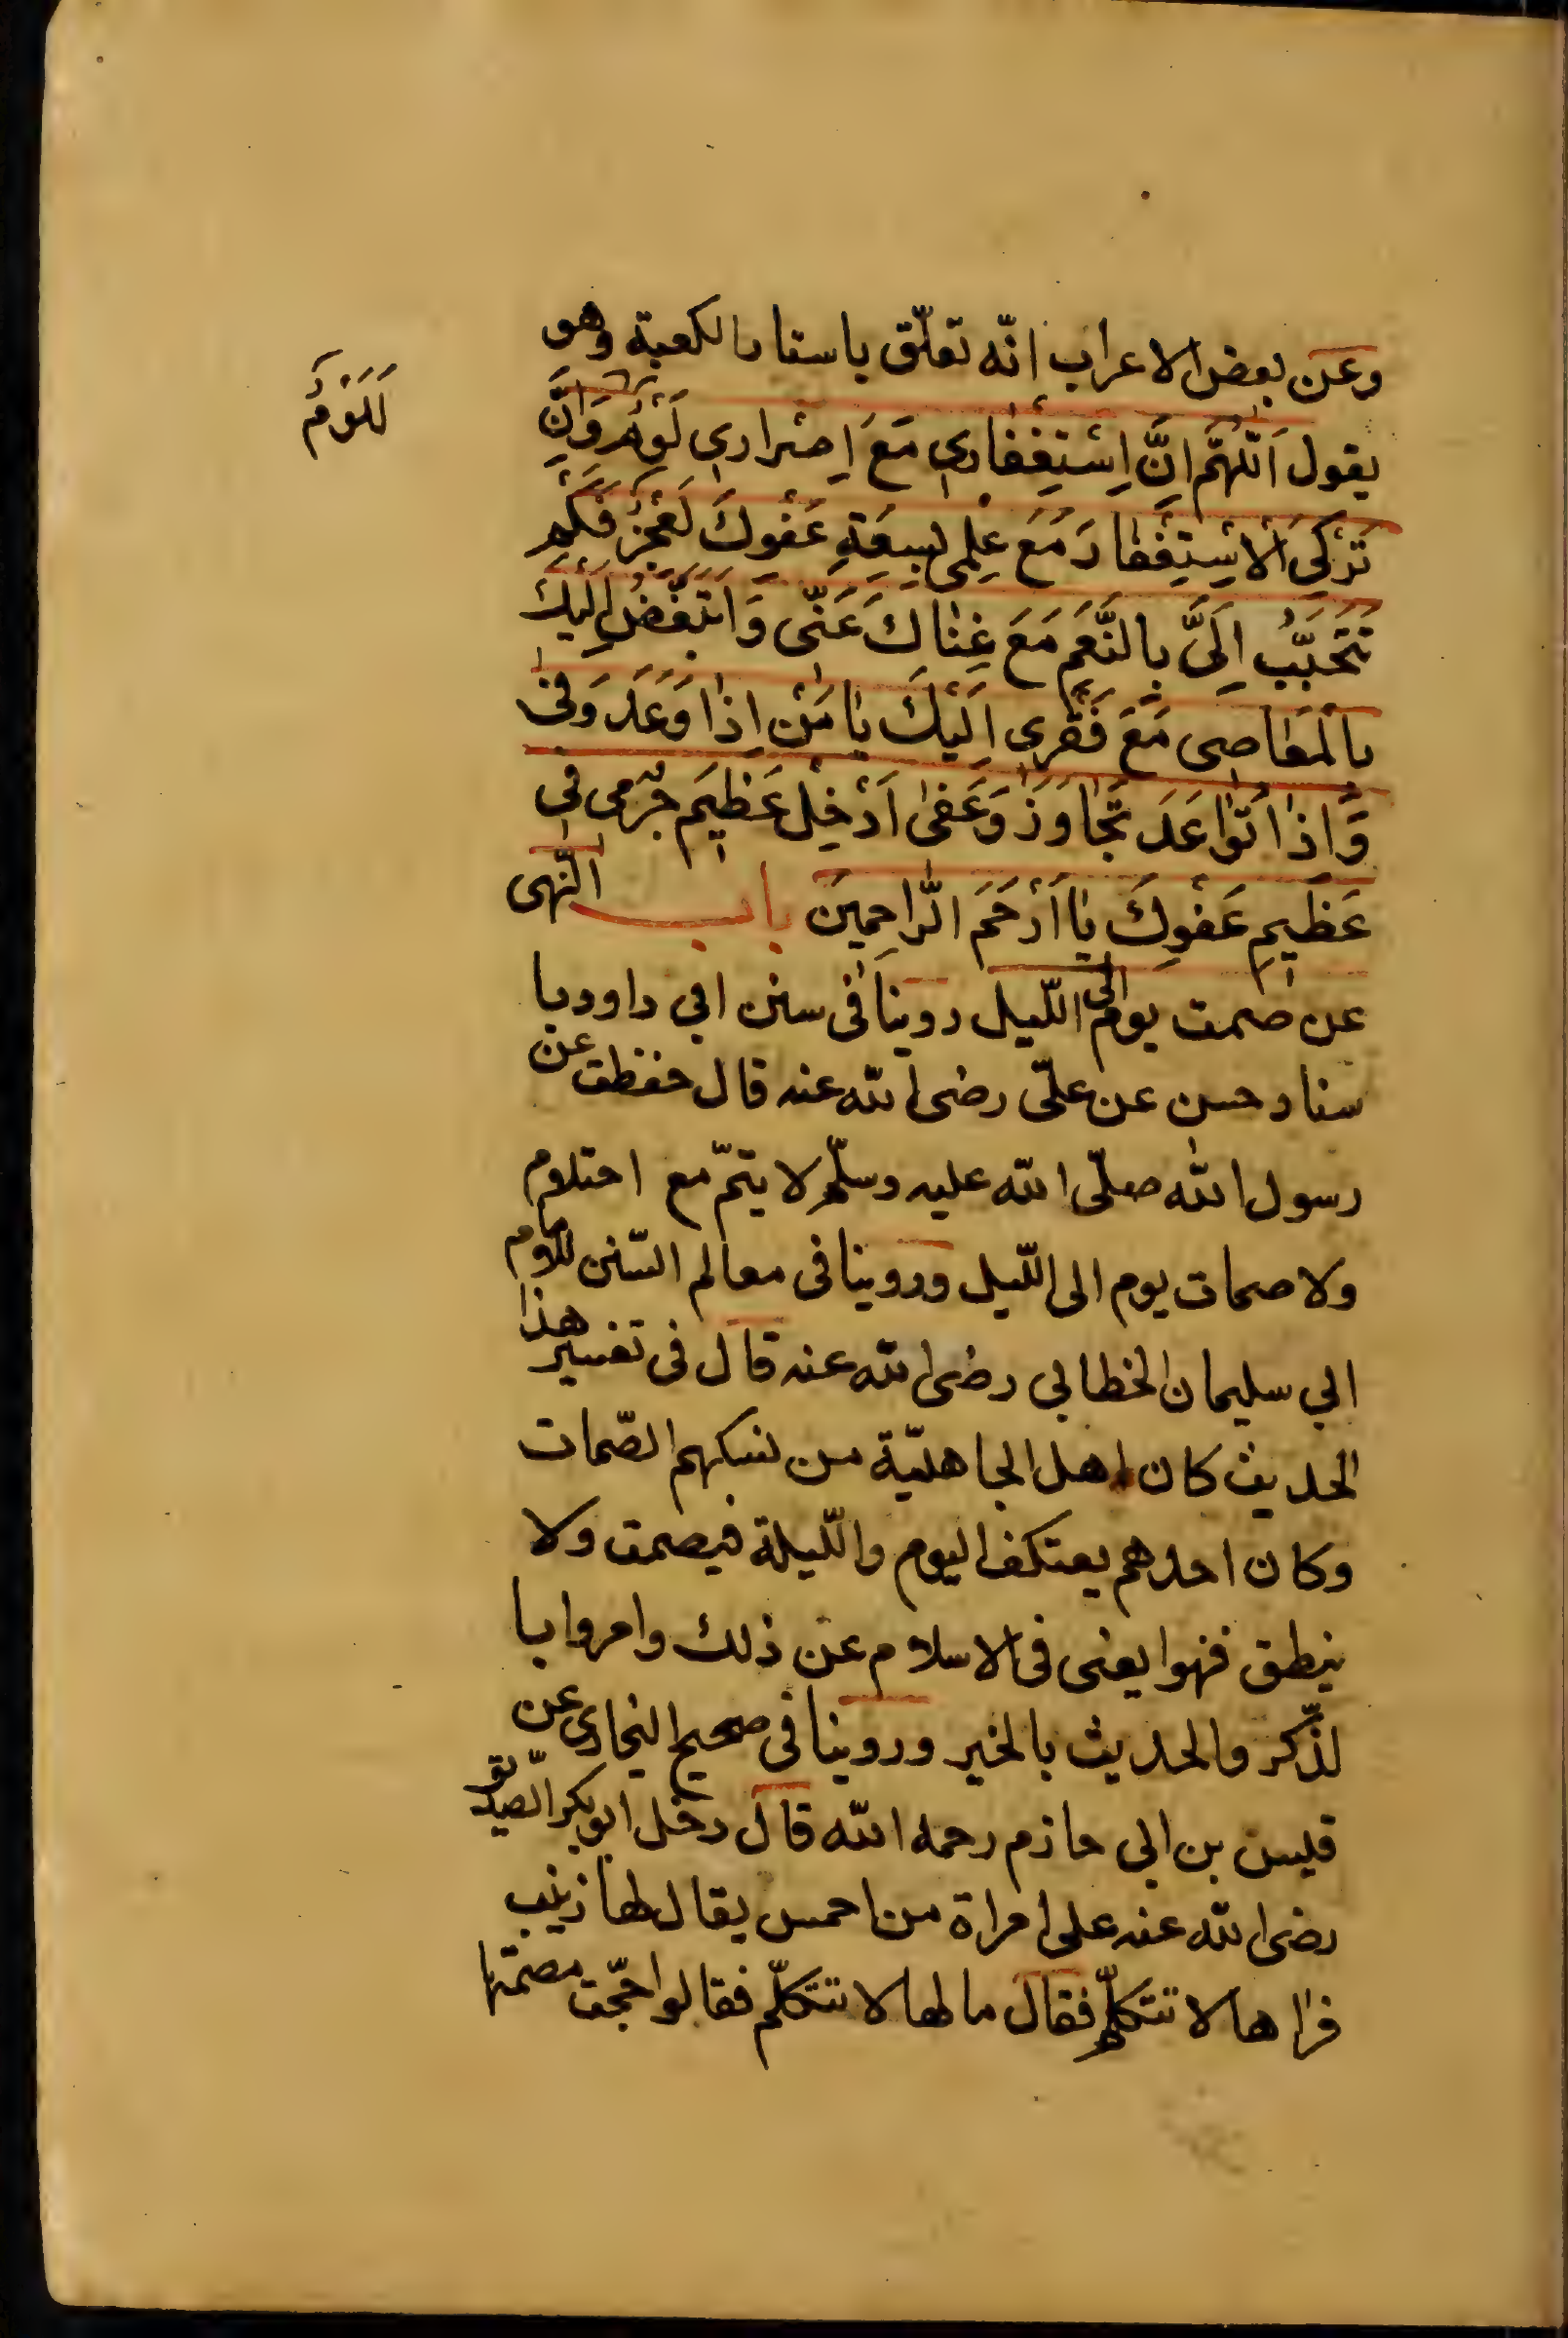 وعن بعض الاعراب انّه تعلّق باستار الكعبة وهو
يقول اَللّٰهُمَّ اِنَّ اِسْتِغْفٰارِي مَعَ اِصْرارِي لَوْمٌ وَاِنَّ
لَلَوْمٌ
تَرْكِيَ الْاِسْتِغْفٰارَ مَعَ عِلْمِي بِسِعَةِ عَفْوِكَ لَعَجْزٌ فَكَمْ
تَتَحَبَّبُ اِلَيَّ بِالنِّعَمِ مَعَ غِنٰاكَ عَنّى وَاَتَبَغَّضُ اِلَيْكَ
بِالْمَعٰاصِى مَعَ فَقْرِي اِلَيْكَ يٰا مَنْ اِذٰا وَعَدَ وَفىٰ
وَاِذٰا تَوٰاعَدَ تَجٰاوَزَ وَعَفىٰ اَدْخِلْ عَظِيمَ جُرْمِى فِي
عَظِيمِ عَفْوِكَ يٰا اَرْحَمَ الرّاحِمِينَ باب النّهى
عن صمت يوم الى اللّيل روينا فى سنن ابي داود با
سناد حسن عن علىّ رضى الله عنه قال حفظت عن
رسول الله صلّى الله عليه وسلّم لا يتمّ مع احتلام
ولا صمات يوم الى اللّيل وروينا فى معالم السّنن للامام
ابي سليمان الخطابي رضى الله عنه قال فى تفسير هذا
الحديث كان اهل الجاهليّة من نسكهم الصّمات
وكان احدهم يعتكف اليوم واللّيلة فيصمت ولا
ينطق فنهوا يعنى فى الاسلام عن ذلك وامروا با
لذّكر والحديث بالخير وروينا فى صحيح البخارى عن
قيس بن ابي حازم رحمه الله قال دخل ابو بكر الصّديق
رضى الله عنه على امراة من احمس يقال لها زينب
فراها لا تتكلّم فقال ما لها لا تتكلّم فقالوا حجّت مصمتها